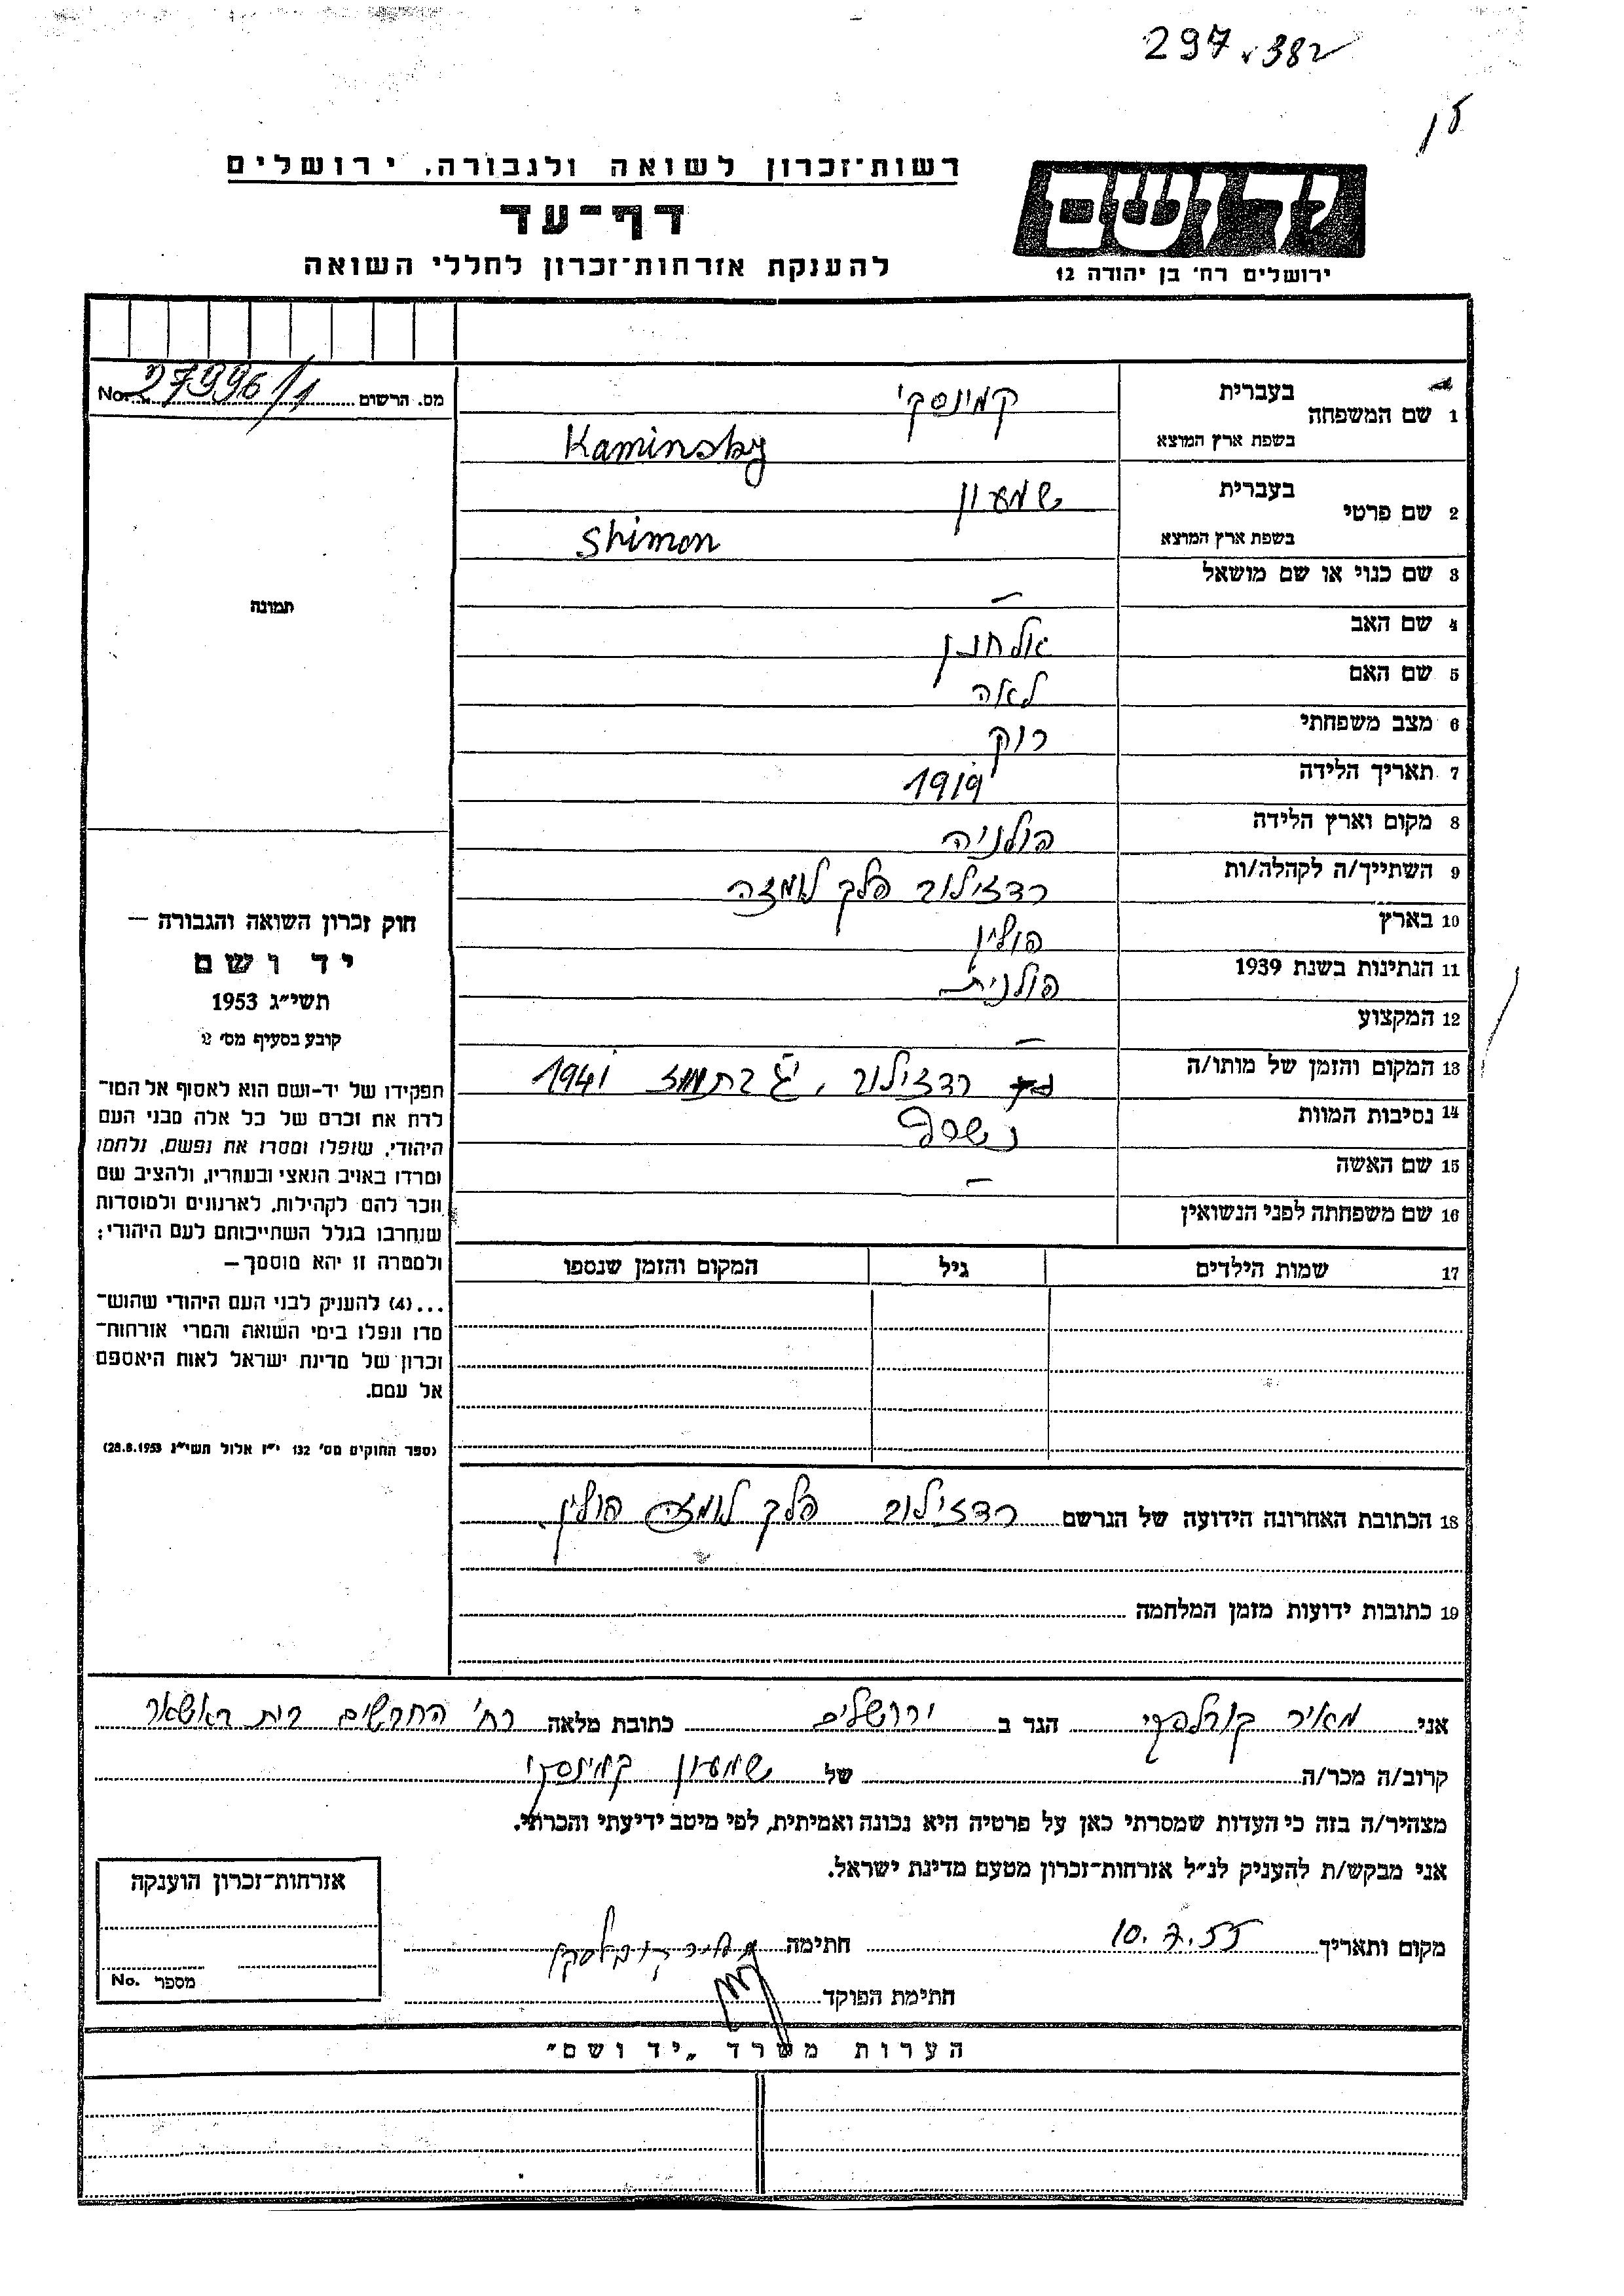 297 382
רשות־זכרון לשואה ולגבורה, ירושלים
דף־עד
להענקת אזרחות־זכרון לחללי השואה
יד ושם
ירושלים רח' בן יהודה 12
מס. הרשום 27996/1 No.
1 שם המשפחה בעברית קמינסקי
בשפת ארץ המוצא Kaminsky
2 שם פרטי בעברית שמעון
בשפת ארץ המוצא Shimon
3 שם כנוי או שם מושאל –
4 שם האב אלחנן
5 שם האם לאה
6 מצב משפחתי רוק
7 תאריך הלידה 1919
8 מקום וארץ הלידה פולניה
9 השתייך/ה לקהלה/ות רדזילוב פלך לומזה
10 בארץ פולין
11 הנתינות בשנת 1939 פולנית
12 המקצוע –
13 המקום והזמן של מותו/ה רדזילוב, בתמוז 1941
14 נסיבות המוות נשרף
15 שם האשה –
16 שם משפחתה לפני הנשואין
17 שמות הילדים גיל המקום והזמן שנספו
18 הכתובת האחרונה הידועה של הנרשם רדזילוב פלך לומזה פולין
19 כתובות ידועות מזמן המלחמה
תמונה
חוק זכרון השואה והגבורה –
יד ושם
תשי״ג 1953
קובע בסעיף מס' 2
תפקידו של יד-ושם הוא לאסוף אל המו־
לדת את זכרם של כל אלה מבני העם
היהודי, שנפלו ומסרו את נפשם, נלחמו
ומרדו באויב הנאצי ובעוזריו, ולהציב שם
וזכר להם לקהילות, לארגונים ולמוסדות
שנחרבו בגלל השתייכותם לעם היהודי;
ולמטרה זו יהא מוסמך –
...(4) להעניק לבני העם היהודי שהוש־
מדו ונפלו בימי השואה והמרי אזרחות־
זכרון של מדינת ישראל לאות היאספם
אל עמם.
(ספר החוקים מס' 132 י״ז אלול תשי״ג 28.8.1953)
אני מאיר הגר ב ירושלים כתובת מלאה רח' החבשים בית
קרוב/ה מכר/ה של שמעון קמינסקי
מצהיר/ה בזה כי העדות שמסרתי כאן על פרטיה היא נכונה ואמיתית, לפי מיטב ידיעתי והכרתי.
אני מבקש/ת להעניק לנ״ל אזרחות־זכרון מטעם מדינת ישראל.
מקום ותאריך 10.7.55 חתימה מאיר
חתימת הפוקד
אזרחות־זכרון הוענקה
מספר No.
הערות משרד „יד ושם"